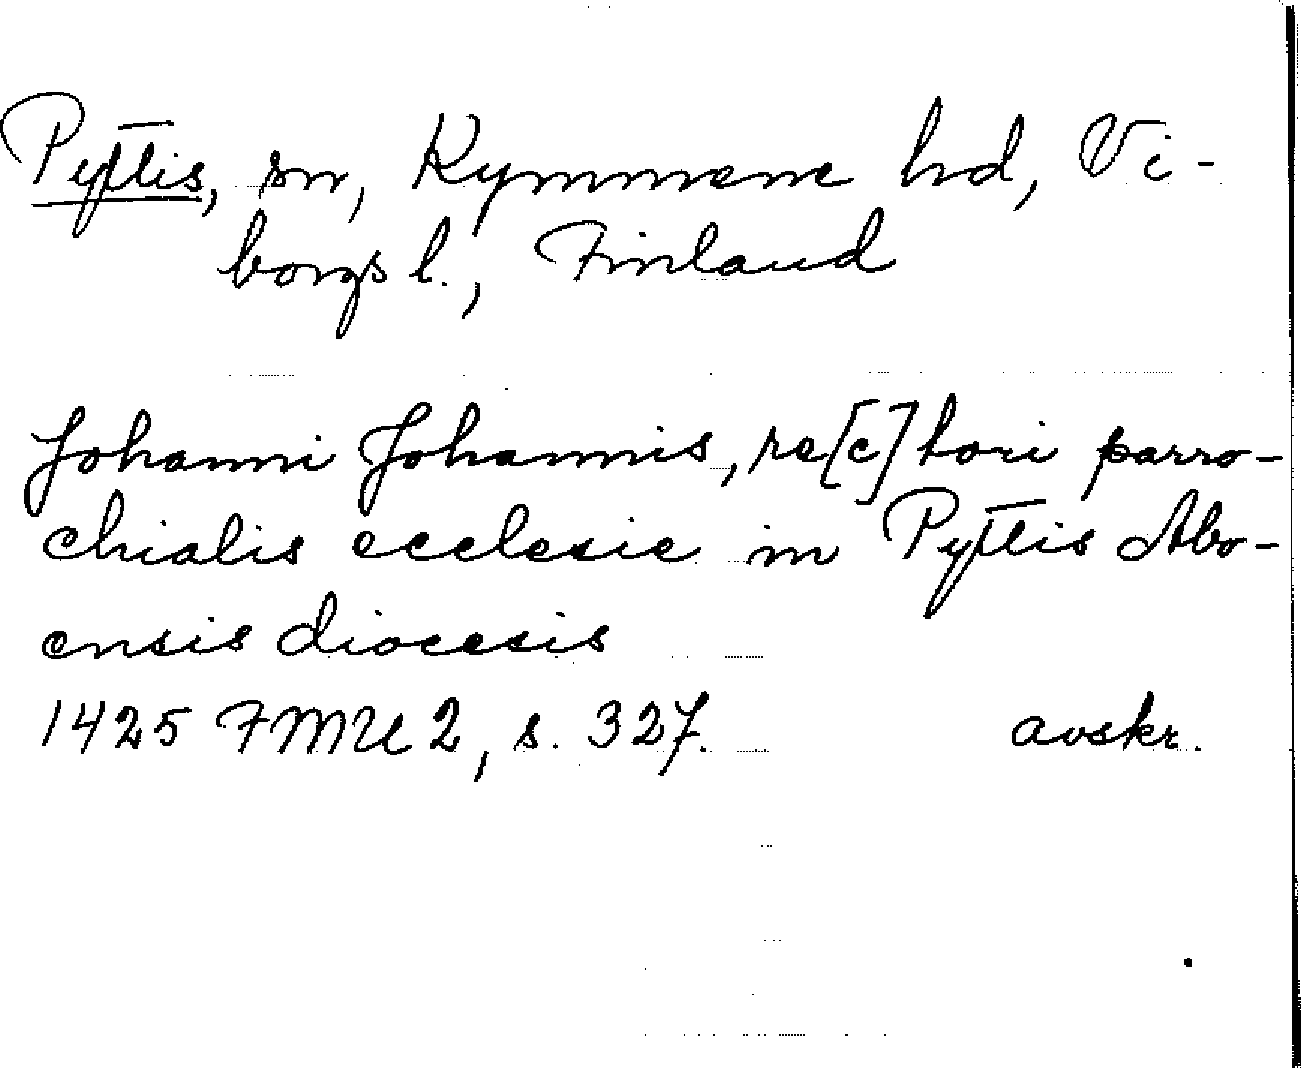 Pyttis, sn, Kymmene hd, Vi-
borgs l., Finland
Johanni Johannis, re[c]tori parro-
chialis ecclesie in Pyttis Abo-
ensis diocesis
1425 FMU 2, s. 327. avskr.